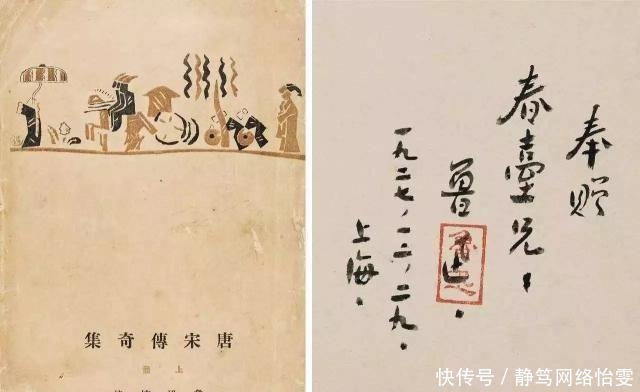 唐宋傳奇集
上冊
奉贈
春臺兄：
魯迅．
一九二七，一二，二九，
上海．
快传号 / 静笃网络怡雯